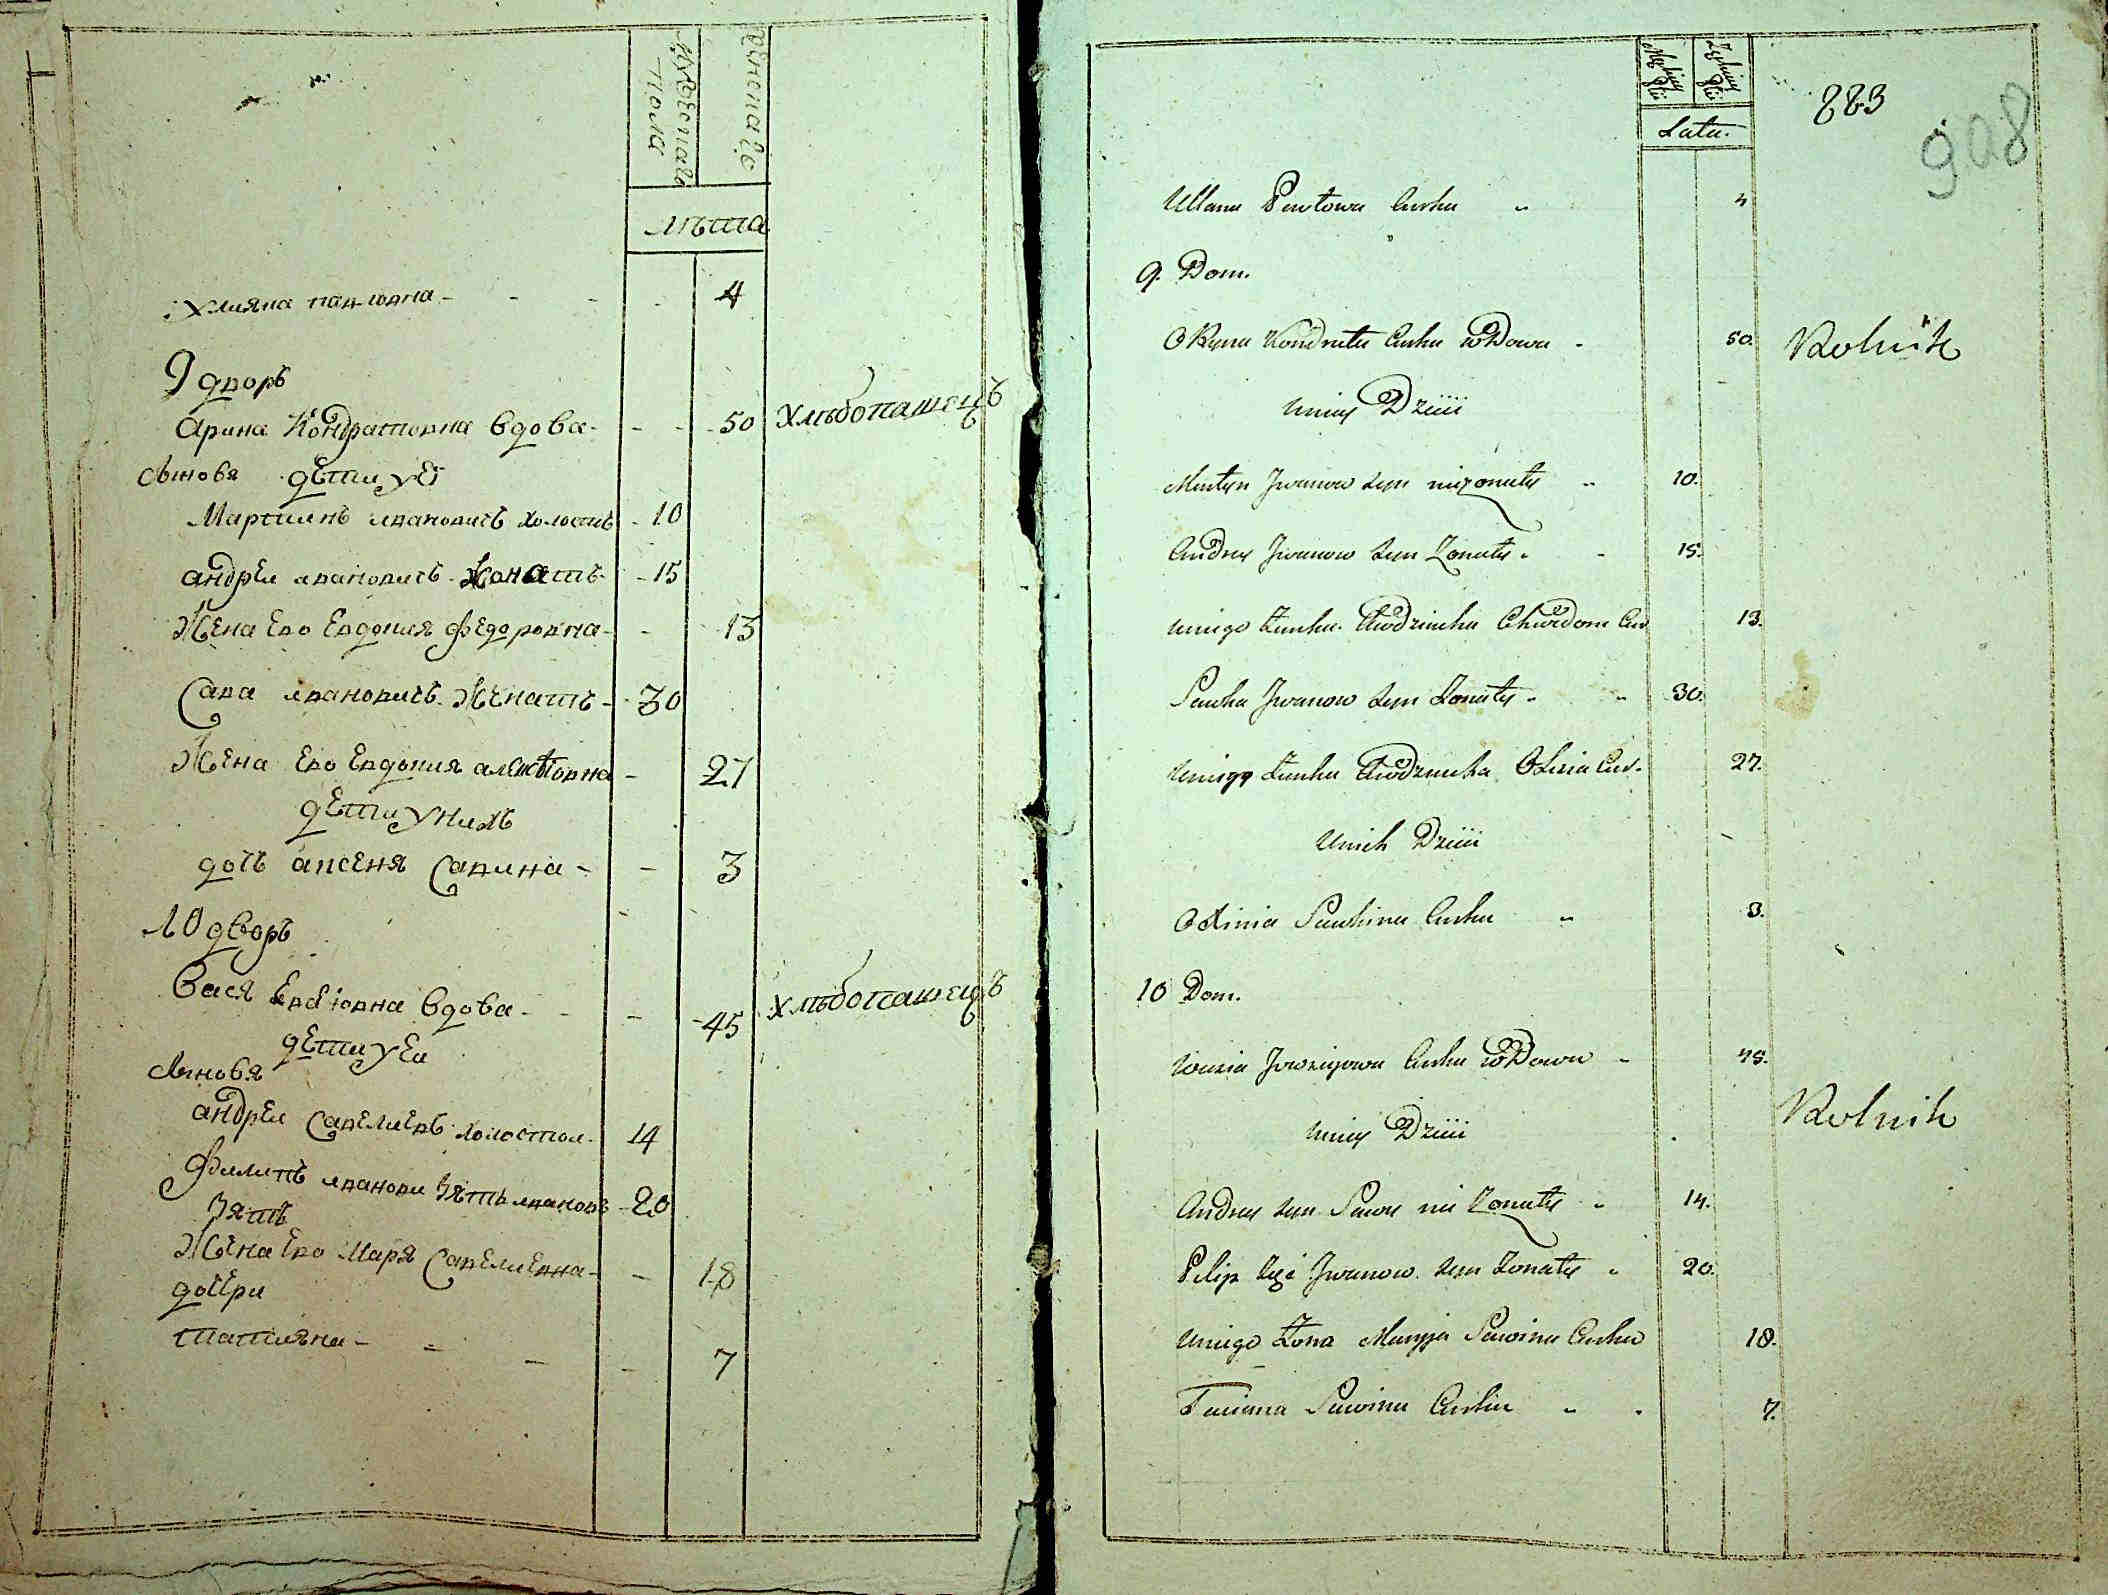 мужескаго
пола
женскаго
лѣта
Улияна павловна - 4
9 дворъ
Арина Кондратовна вдова - 50 хлѣбопашецъ
сыновя дѣти уеї
Мартинъ ивановичъ холостъ - 10
андреи ивановичъ жонатъ - 15
Жена ево Евдокия федоровна - 13
Сава ивановичъ женатъ - 30
Жена ево Евдокия алексѣовна - 27
дети унихъ
дочъ аксеня Савина - 3
10 дворъ
Вася вдова - 45 хлѣбопашецъ
дети уеи
сыновя
андреи Савелиевъ холостои - 14
Филипъ иванови зять ивановъ - 20
Зятъ
Жена ево Маря Савелиевна - 18
дочери
татияна - 7
Męskiey Płci
Zęskiey Płci
Lata.
223
908
Ullana Pawłowa Curka 4
9. Dom.
Oryna Kondrata Curka wdowa 50. Rolnik
uniey Dzieci
Martyn Jwanow syn nieżonaty 10.
Andrey Jwanow syn Żonaty 15.
uniego Żonka Chwedora Cur 13.
Sawka Jwanow syn Żonaty 30.
uniego Żonka Cur. 27.
Unich Dzieci
Oxinia Sawkina Curka 3.
10 Dom.
Wasia Curka wdowa 45.
uniey Dzieci Rolnik
Andrey syn Sawy nie Żonaty 14.
Pilip Zięć Jwanow syn Żonaty 20.
uniego Żona Maryja Sawina Curka 18.
Taciana Sawina Curka 7.